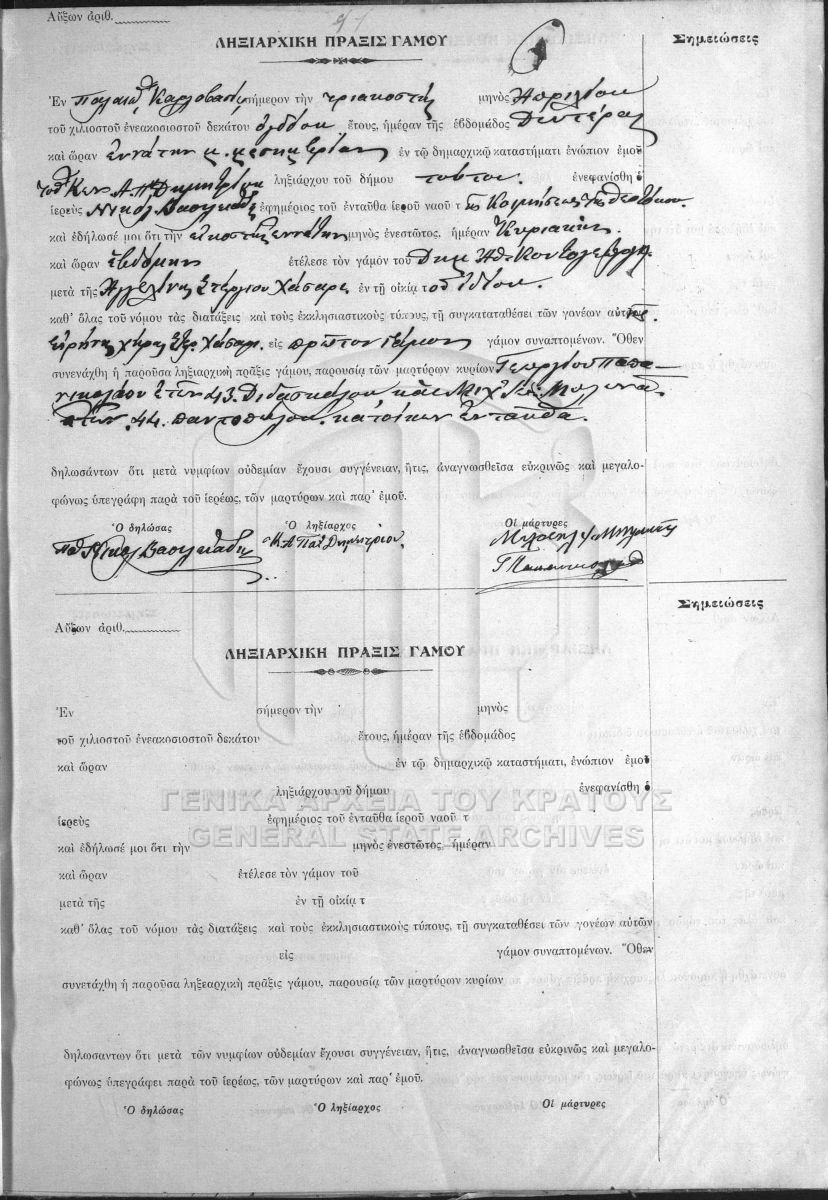 Αὔξων ἀριθ.
ΛΗΞΙΑΡΧΙΚΗ ΠΡΑΞΙΣ ΓΑΜΟΥ
Σημειώσεις
Ἐν Παλαιῷ Καρλοβασίῳ σήμερον τὴν τριακοστὴν μηνὸς Ἀπριλίου
τοῦ χιλιοστοῦ ἐνεακοσιοστοῦ δεκάτου ὀγδόου ἔτους, ἡμέραν τῆς ἑβδομάδος Δευτέραν
καὶ ὥραν ἐννάτην π. μεσημβρίαν ἐν τῷ δημαρχικῷ καταστήματι ἐνώπιον ἐμοῦ
Κων. Α. Πα Δημητρίου ληξιάρχου τοῦ δήμου τούτου. ἐνεφανίσθη ὁ
ἱερεὺς Νικόλ. ἐφημέριος τοῦ ἐνταῦθα ἱεροῦ ναοῦ τῆς Κοιμήσεως τῆς Θεοτόκου.
καὶ ἐδήλωσέ μοι ὅτι τὴν εἰκοστὴν ἐννάτην μηνὸς ἐνεστῶτος, ἡμέραν Κυριακὴν.
καὶ ὥραν ἑβδόμην ἐτέλεσε τὸν γάμον τοῦ Δημ. Ἀθ.
μετὰ τῆς Ἀγγελίνας Στεργίου Χάσαρη ἐν τῇ οἰκίᾳ τοῦ ἰδίου.
καθ' ὅλας τοῦ νόμου τὰς διατάξεις καὶ τοὺς ἐκκλησιαστικοὺς τύπους, τῇ συγκαταθέσει τῶν γονέων αὐτῆς
Εἰρήνης χήρας Στεργ. Χάσαρη. εἰς πρῶτον γάμον γάμον συναπτομένων. Ὅθεν
συνενάχθη ἡ παροῦσα ληξιαρχικὴ πρᾶξις γάμου, παρουσίᾳ τῶν μαρτύρων κυρίων Γεωργίου Παπα-
νικολάου ἐτῶν 43. Διδασκάλου, καὶ Μιχ.
ἐτῶν. 44. παντοπώλου. κατοίκων ἐνταῦθα.
δηλωσάντων ὅτι μετὰ νυμφίων οὐδεμίαν ἔχουσι συγγένειαν, ἥτις, ἀναγνωσθεῖσα εὐκρινῶς καὶ μεγαλο-
φώνως ὑπεγράφη παρὰ τοῦ ἱερέως, τῶν μαρτύρων καὶ παρ' ἐμοῦ.
Ὁ δηλώσας Ὁ ληξίαρχος Οἱ μάρτυρες
Κ Α Πα Δημητρίου
Γ Παπανικολάου
Σημειώσεις
Αὔξων ἀριθ.
ΛΗΞΙΑΡΧΙΚΗ ΠΡΑΞΙΣ ΓΑΜΟΥ
Ἐν σήμερον τὴν μηνὸς
τοῦ χιλιοστοῦ ἐνεακοσιοστοῦ δεκάτου ἔτους, ἡμέραν τῆς ἑβδομάδος
καὶ ὥραν ἐν τῷ δημαρχικῷ καταστήματι, ἐνώπιον ἐμοῦ
ληξιάρχου τοῦ δήμου ἐνεφανίσθη ὁ
ΓΕΝΙΚΑ ΑΡΧΕΙΑ ΤΟΥ ΚΡΑΤΟΥΣ
ἱερεὺς ἐφημέριος τοῦ ἐνταῦθα ἱεροῦ ναοῦ τ
GENERAL STATE ARCHIVES
καὶ ἐδήλωσέ μοι ὅτι τὴν μηνὸς ἐνεστῶτος, ἡμέραν
καὶ ὥραν ἐτέλεσε τὸν γάμον τοῦ
μετὰ τῆς ἐν τῇ οἰκίᾳ τ
καθ' ὅλας τοῦ νόμου τὰς διατάξεις καὶ τοὺς ἐκκλησιαστικοὺς τύπους, τῇ συγκαταθέσει τῶν γονέων αὐτῶν
εἰς γάμον συναπτομένων. Ὅθεν
συνετάχθη ἡ παροῦσα ληξεαρχικὴ πρᾶξις γάμου, παρουσίᾳ τῶν μαρτύρων κυρίων
δηλωσαντων ὅτι μετὰ τῶν νυμφίων οὐδεμίαν ἔχουσι συγγένειαν, ἥτις, ἀναγνωσθεῖσα εὐκρινῶς καὶ μεγαλο-
φώνως ὑπεγράφει παρὰ τοῦ ἱερέως, τῶν μαρτύρων καὶ παρ' ἐμοῦ.
Ὁ δηλώσας Ὁ ληξίαρχος Οἱ μάρτυρες